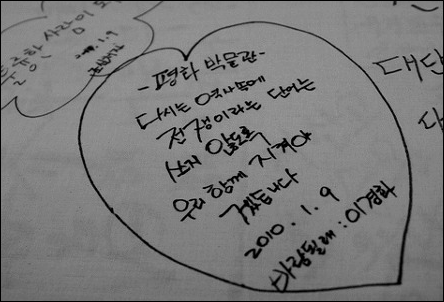 훌륭한 사람이 되
2010. 1. 9
- 평화 박물관 -
다시는 역사속에
전쟁이라는 단어는
쓰지 않도록
우리 함께 지켜야
겠습니다
2010. 1. 9
바람될래 : 이경화
대단
다